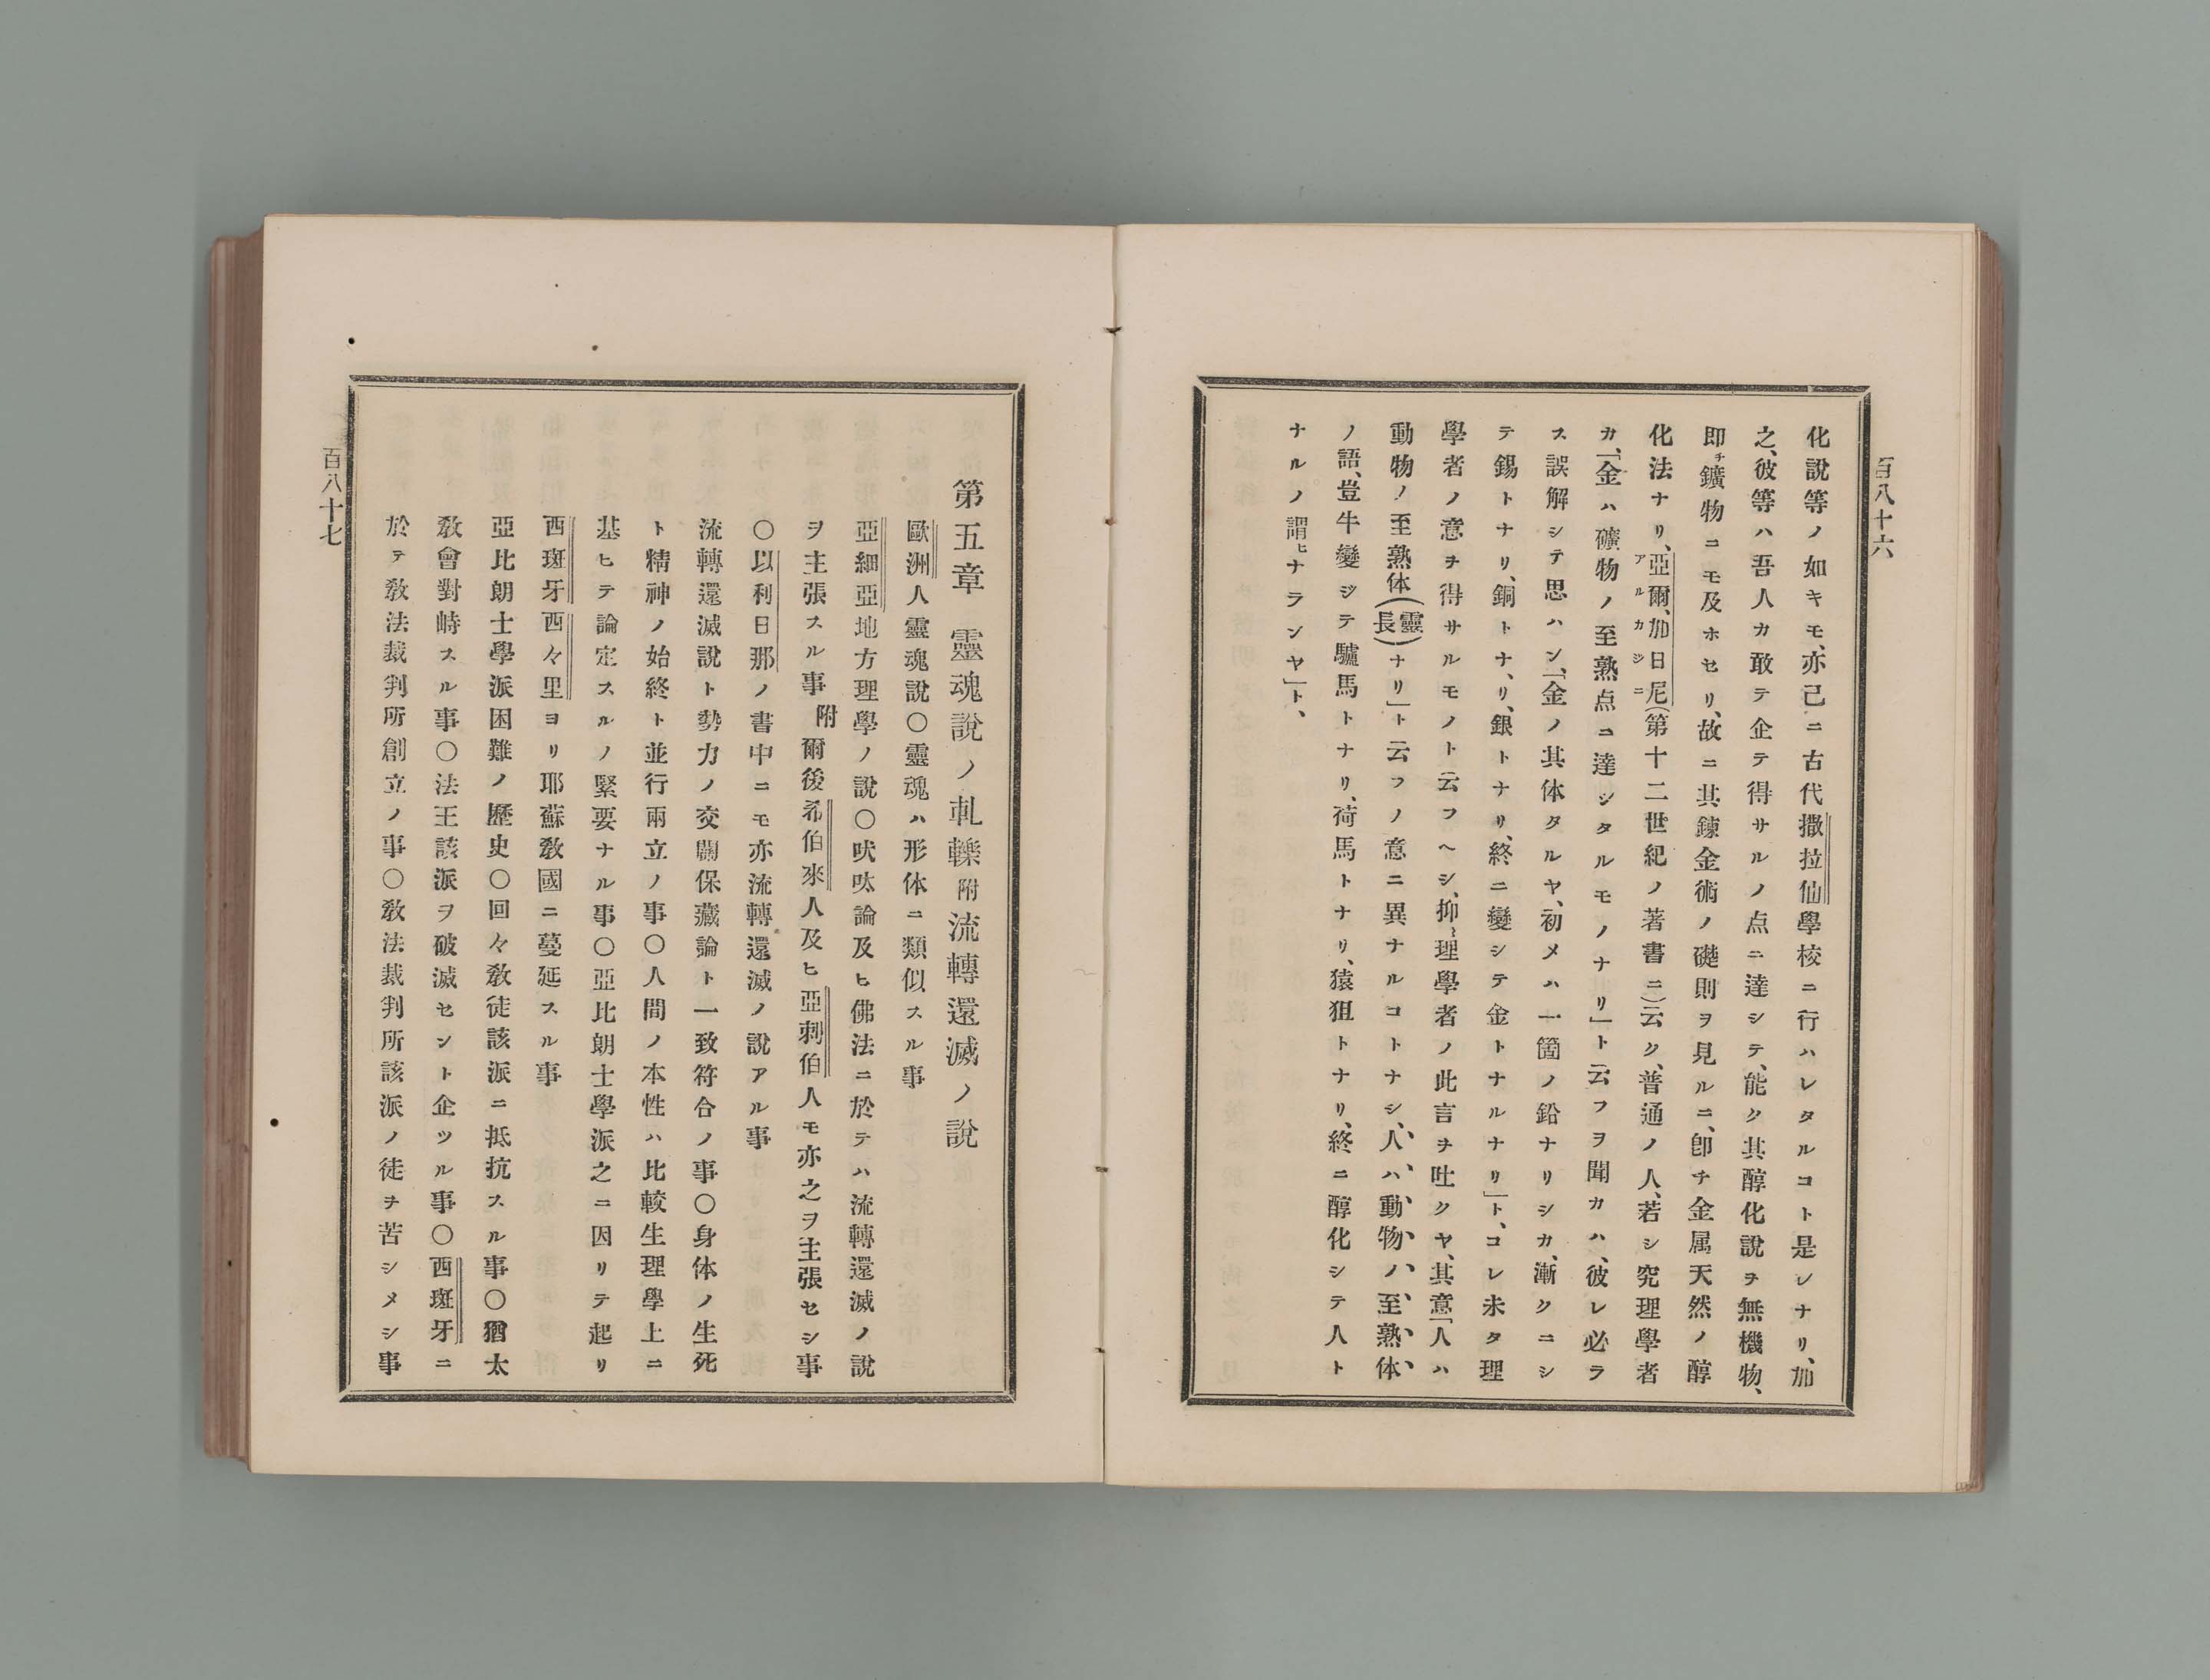 百八十六
化說等ノ如キモ、亦已ニ古代撒拉仙學校ニ行ハレタルコト是レナリ、加
之、彼等ハ吾人カ敢テ企テ得サルノ点ニ達シテ、能ク其醇化說ヲ無機物、
即チ鑛物ニモ及ホセリ、故ニ其鍊金術ノ礎則ヲ見ルニ、卽チ金属天然ノ醇
化法ナリ、亞爾、加日尼(第十二世紀ノ著書ニ)云ク、普通ノ人、若シ究理學者
アルカジニ
カ、「金ハ礦物ノ至熟点ニ達シタルモノナリ」ト云フヲ聞カハ、彼レ必ラ
ス誤解シテ思ハン、「金ノ其体タルヤ、初メハ一箇ノ鉛ナリシカ、漸クニシ
テ錫トナリ、銅トナ、リ、銀トナリ、終ニ變シテ金トナルナリ」ト、コレ未タ理
學者ノ意ヲ得サルモノト云フヘシ、抑ミ理學者ノ此言ヲ吐クヤ、其意「人ハ
動物ノ至熟体(靈長)ナリ」ト云フノ意ニ異ナルコトナシ、人ハ、動物ノ、至熟体、
ノ語、豈牛變ジテ驢馬トナリ、荷馬トナリ、猿狙トナリ、終ニ醇化シテ人ト
ナルノ謂ヒナランヤ」ト、
第五章　靈魂說ノ軋轢附流轉還滅ノ說
歐洲人靈魂說〇靈魂ハ形体ニ類似スル事
亞細亞地方理學ノ說〇吠陀論及ヒ佛法ニ於テハ流轉還滅ノ說
ヲ主張スル事附爾後希伯來人及ヒ亞刺伯人モ亦之ヲ主張セシ事
〇以利日那ノ書中ニモ亦流轉還滅ノ說アル事
流轉還滅說ト勢力ノ交關保藏論ト一致符合ノ事〇身体ノ生死
ト精神ノ始終ト並行兩立ノ事〇人間ノ本性ハ比較生理學上ニ
基ヒテ論定スルノ緊要ナル事〇亞比朗士學派之ニ因リテ起リ
西斑牙西々里ヨリ耶蘇敎國ニ蔓延スル事
亞比朗士學派困難ノ歷史〇回々敎徒該派ニ抵抗スル事〇猶太
敎會對峙スル事〇法王該派ヲ破滅セント企ツル事〇西斑牙ニ
於テ敎法裁判所創立ノ事〇敎法裁判所該派ノ徒ヲ苦シメシ事
百八十七